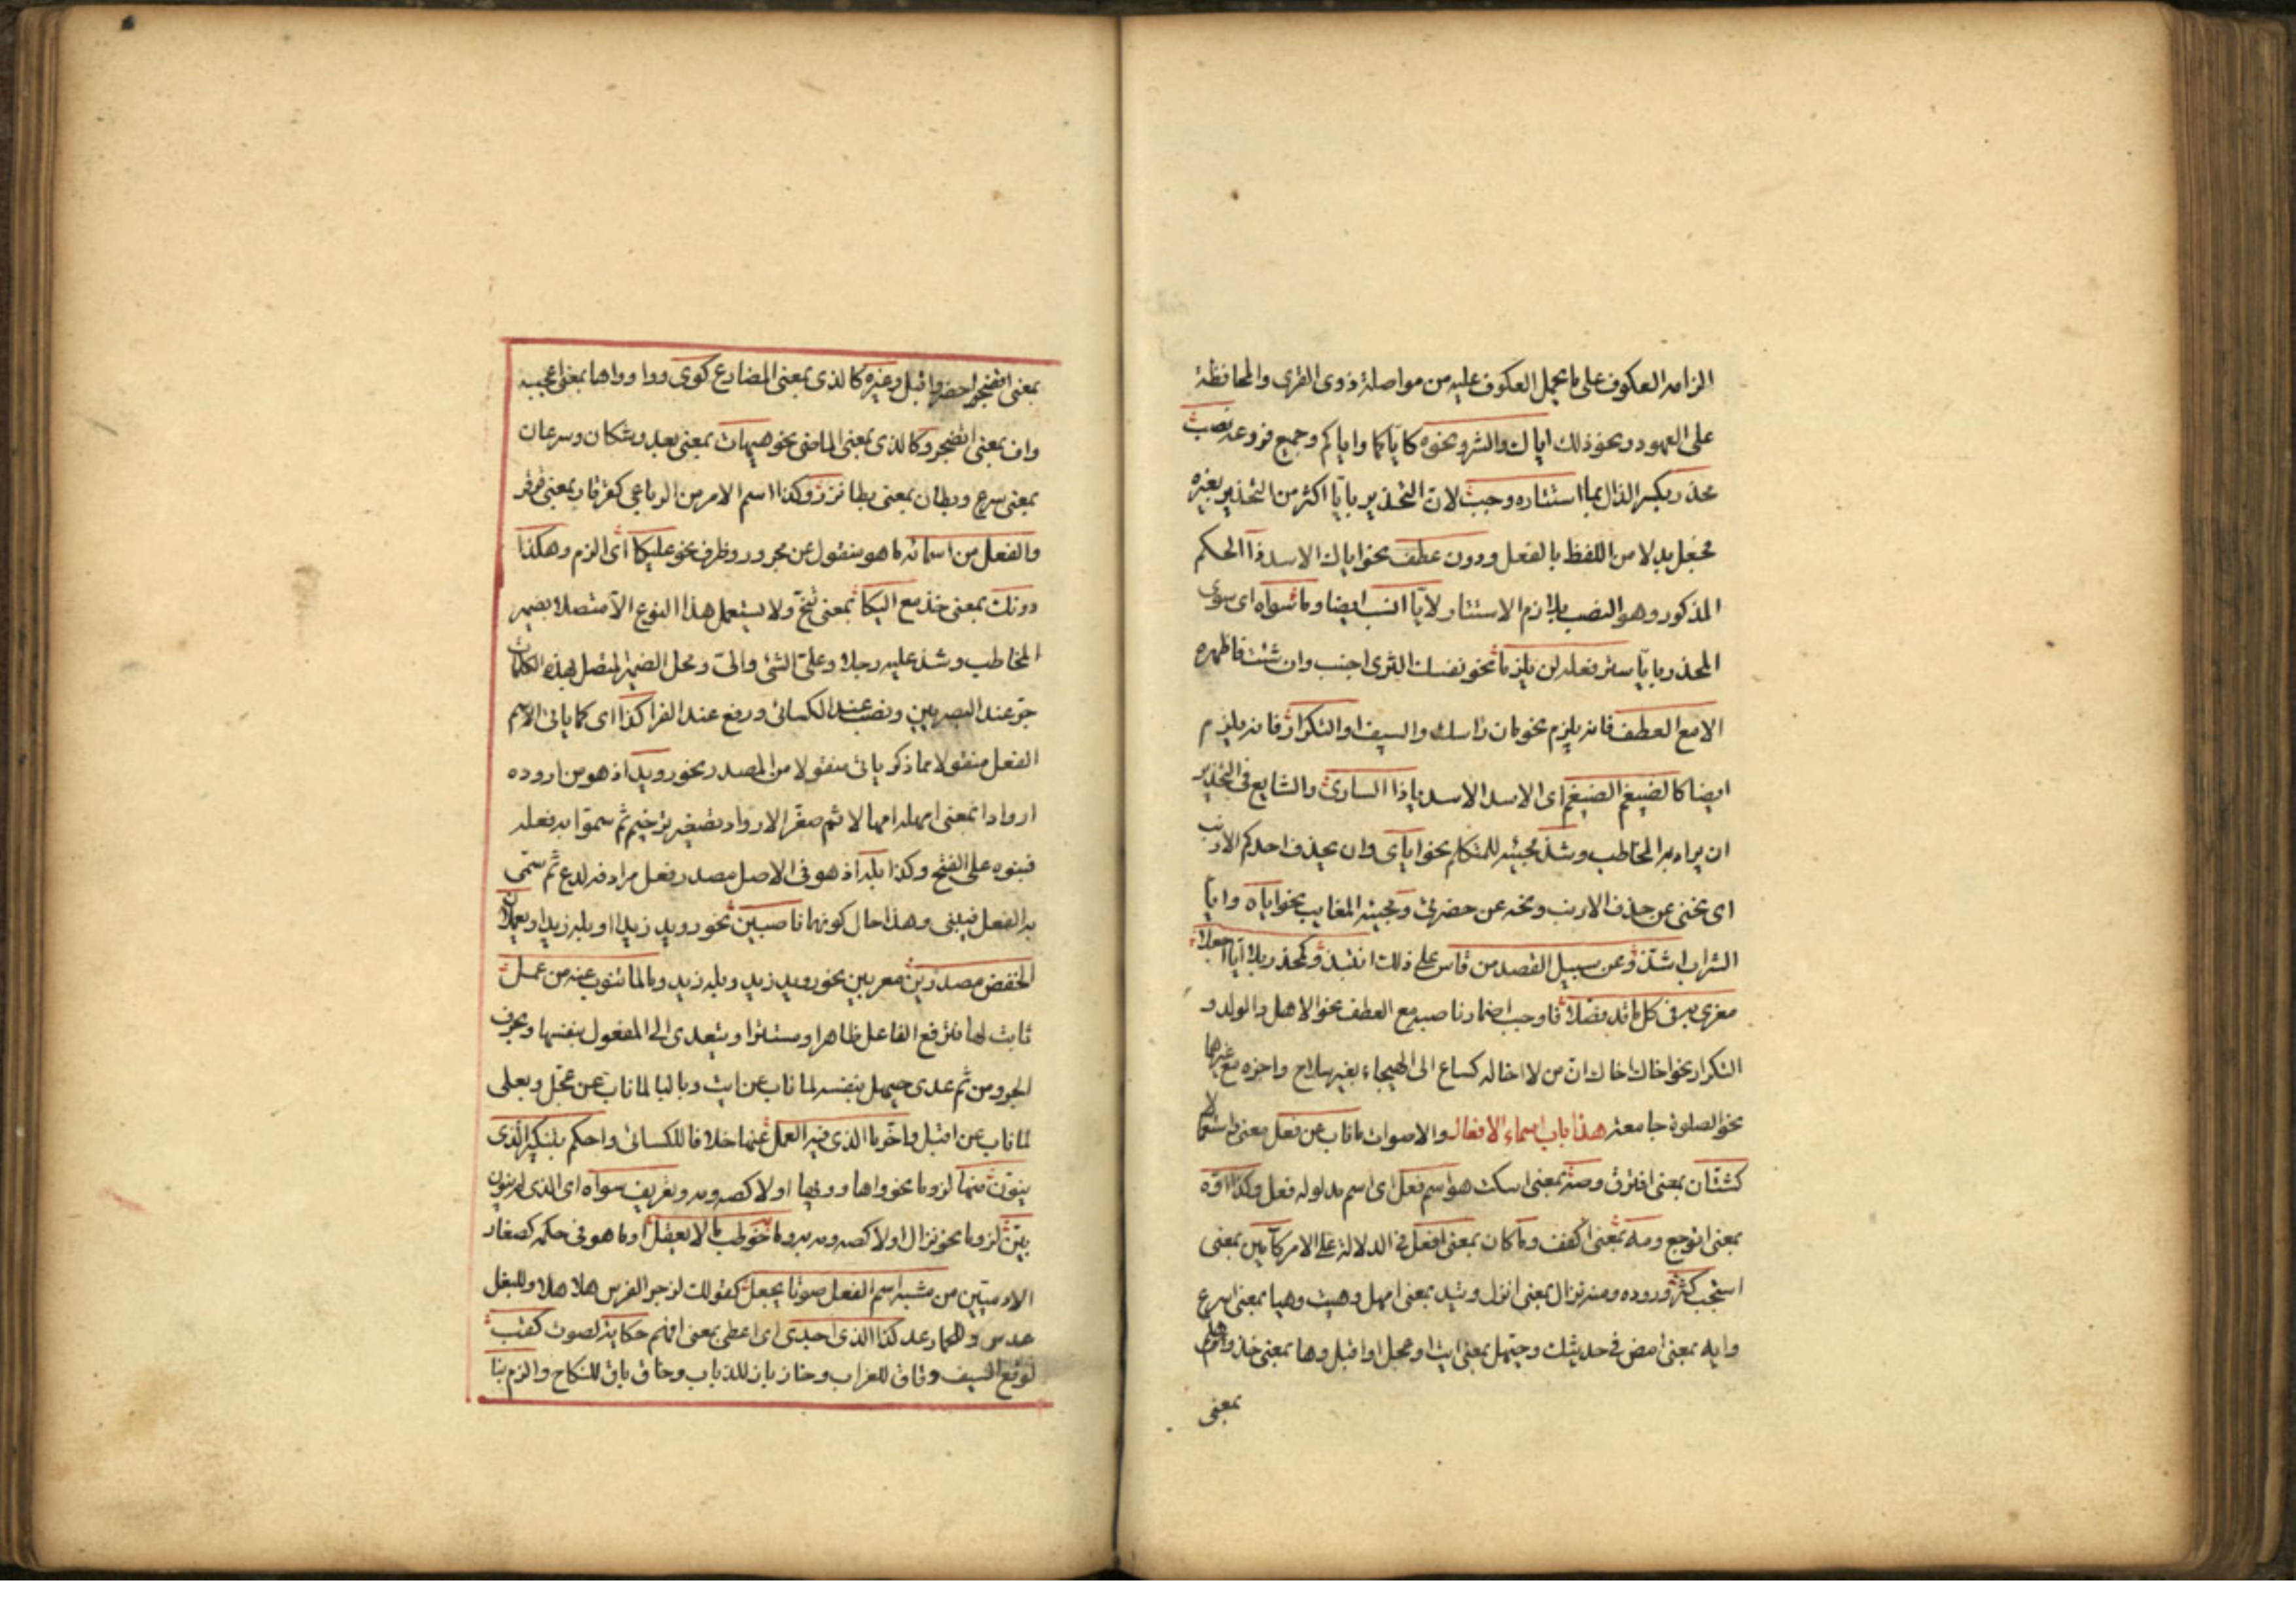 الزامه العكوف على ما يحمل العكوف عليه من مواصلة ذوى القربى والمحافظة
على العهود ونحو ذلك اياك والشر ونحوه كاياكما واياكم وجميع فروعه نصب
محذر بكسر الذال بما استتاره وجب لان التحذير بايا اكثر من التحذير بغيره
فجعل بدلا من اللفظ بالفعل ودون عطف نحو اياك الاسد ذا الحكم
المذكور وهو النصب بلازم الاستتار لايا انسب ايضا وما سواه اى سوى
المحذر بايا ستر فعله لن يلزما نحو نفسك الشر اى اجنب وان شئت فاظهره
الا مع العطف فانه يلزم نحو ماز راسك والسيف او التكرار فانه يلزم
ايضا كالضيغم الضيغم اى الاسد الاسد يا ذا السارى والشايع فى التحذير
ان يراد به المخاطب وشذ مجيئه للمتكلم نحو اياى وان يحذف احدكم الارنب
اى نحنى عن حذف الارنب ونحه عن حضرتى ومجيئه للغايب نحو اياه وايا
الشواب اشذ وعن سبيل القصد من قاس على ذلك انتبذ وكمحذر بلا ايا اجعلا
مغرى به فى كل ما قد فضلا فاوجب اضمار ناصبه مع العطف نحو الاهل والولد و
التكرار نحو اخاك اخاك ان من لا اخا له كساع الى الهيجاء بغير سلاح واجزه مع غيرهما
نحو الصلوة جامعة هذا باب اسماء الافعال والاصوات ما ناب عن فعل معنى واستعمالا
كشتان بمعنى افترق وصه بمعنى اسكت هو اسم فعل اى اسم مدلوله فعل وكذا اوه
بمعنى اتوجع ومه بمعنى اكفف وما كان بمعنى افعل فى الدلالة على الامر كآمين بمعنى
استجب كثر وروده ومنه نزال بمعنى انزل وتيد بمعنى امهل وهيت وهيا بمعنى اسرع
وايه بمعنى امض فى حديثك وحيهل بمعنى ايت او عجل او اقبل وها بمعنى خذ وهلم
بمعنى
بمعنى احضر او اقبل وغيره كالذى بمعنى المضارع كوى ووا وواها بمعنى اعجب
واف بمعنى اتضجر وكالذى بمعنى الماضى نحو هيهات بمعنى بعد وشكان وسرعان
بمعنى سرع وبطان بمعنى بطا نزر وكذا اسم الامر من الرباعى كقرقار بمعنى قرقر
والفعل من اسمائه ما هو منقول عن مجرور وظرف نحو عليكا اى الزم وهكذا
دونك بمعنى خذ مع اليكا بمعنى تنح ولا يستعمل هذا النوع الا متصلا بضمير
المخاطب وشذ عليه رجلا وعلى الشئ والى ومحل الضمير المتصل بهذه الكلمات
جر عند البصريين ونصب عند الكسائى ورفع عند الفرا كذا اى كما ياتى اسم
الفعل منقولا مما ذكر ياتى منقولا من المصدر نحو رويد اذ هو من اروده
اروادا بمعنى امهله امهالا ثم صغر الارواد تصغير ترخيم ثم سموا به فعله
فبنوه على الفتح وكذا بله اذ هو فى الاصل مصدر فعل مرادف لدع ثم سمى
به الفعل فبنى وهذا حال كونهما ناصبين نحو رويد زيدا او بله زيدا ويعملان
الخفض مصدرين معربين نحو رويد زيد وبله زيد وما لما تنوب عنه من عمل
ثابت لها فترفع الفاعل ظاهرا ومستترا ويتعدى الى المفعول بنفسها وبحرف
الجر ومن ثم عدى حيهل بنفسه لما ناب عن ايت وبالبا لما ناب عن عجل وبعلى
لما ناب عن اقبل واخر ما الذى فيه العمل عنها خلافا للكسائى واحكم بتنكير الذى
ينون منها لزوما نحو واها وويها او لا كصه ومه وتعريف سواه اى الذى لم ينون
بين لزوما نحو نزال او لا كصه ومه وما خوطب ما لا يعقل او ما هو فى حكمه كصغار
الادميين من مشبه اسم الفعل صوتا يجعل كقولك لزجر الفرس هلا هلا وللبغل
عدس وللحمار عد كذا الذى اجدى اى اعطى بمعنى افهم حكاية لصوت كقب
لوقع السيف وغاق للغراب وخاز باز للذباب وخاق باق للنكاح والزم بنا